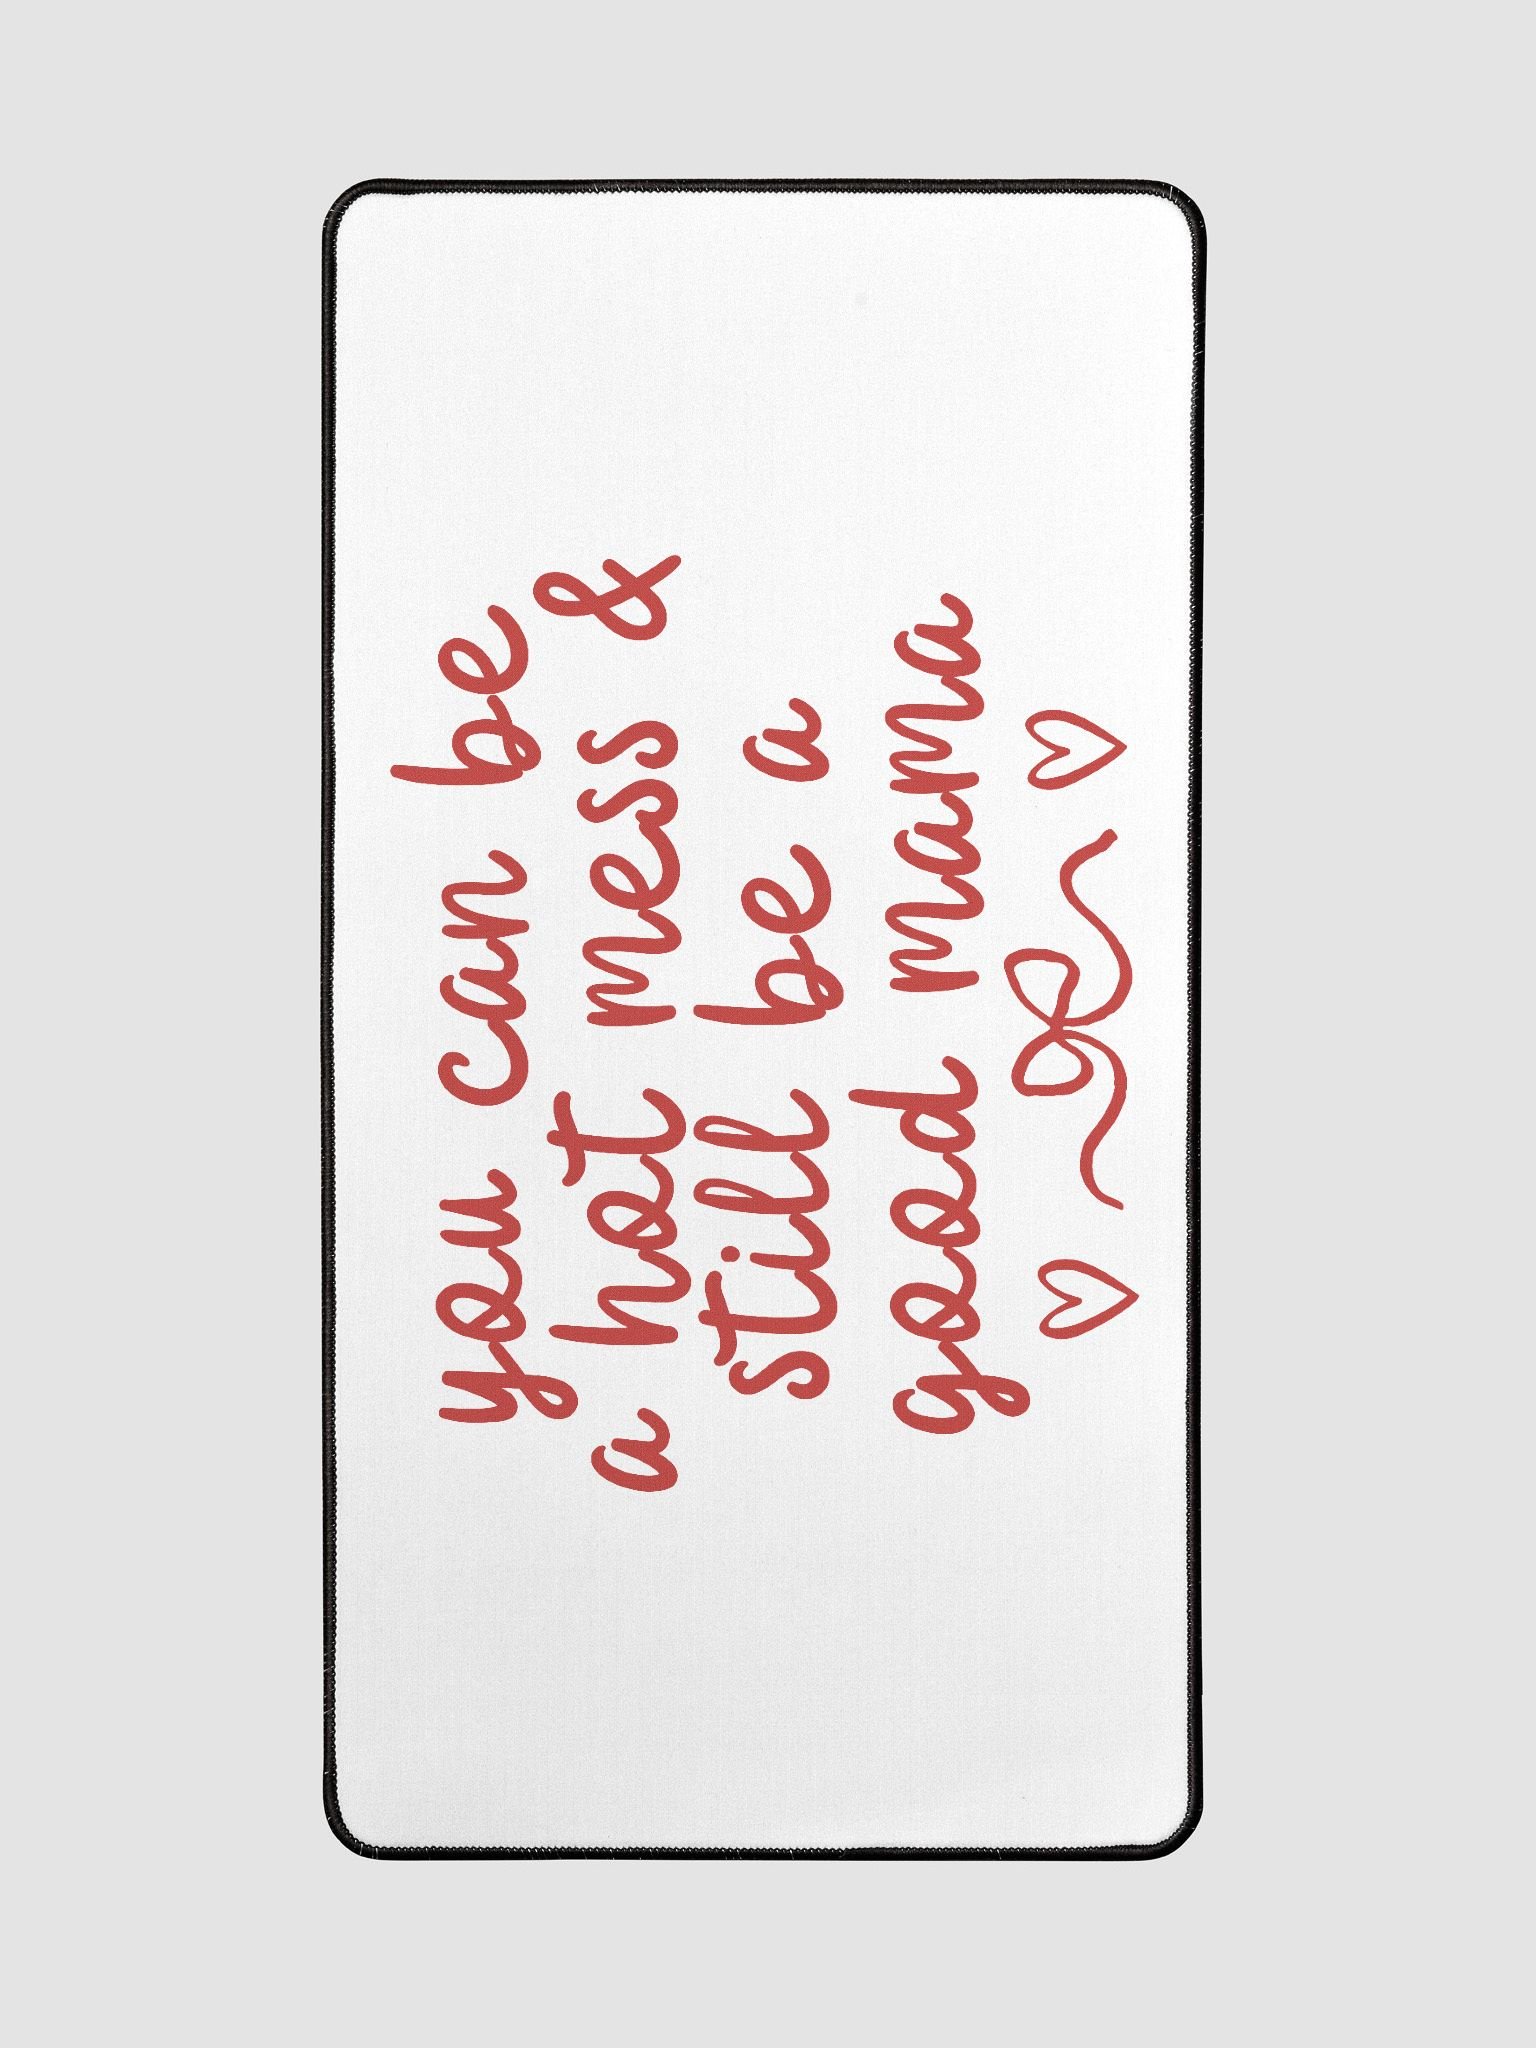 you can be
a hot mess &
still be a
good mama